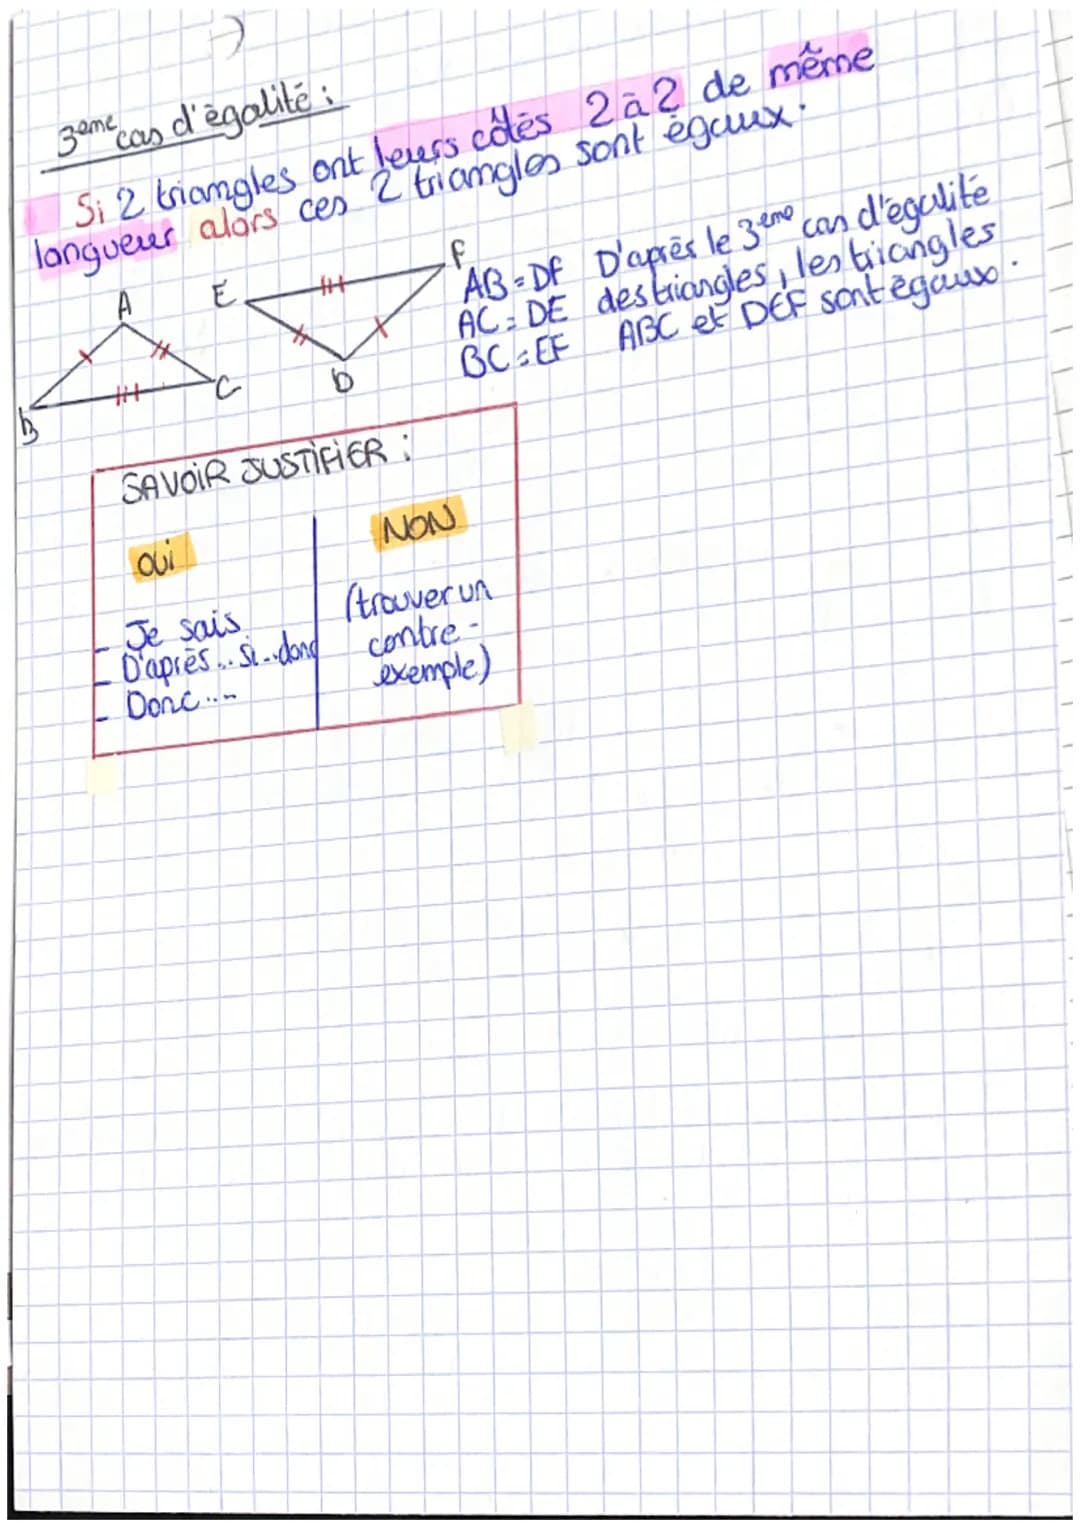 3ème cas d'égalité :
Si 2 triangles ont leurs côtés 2 à 2 de même
longueur alors ces 2 triangles sont égaux.
A
B
C
E
F
D
AB = DF
AC = DE
BC = EF
D'après le 3ème cas d'égalité
des triangles, les triangles
ABC et DEF sont égaux.
SAVOIR JUSTIFIER :
OUI
- Je sais
- D'après... Si...donc
- Donc....
NON
(trouver un
contre-
exemple)